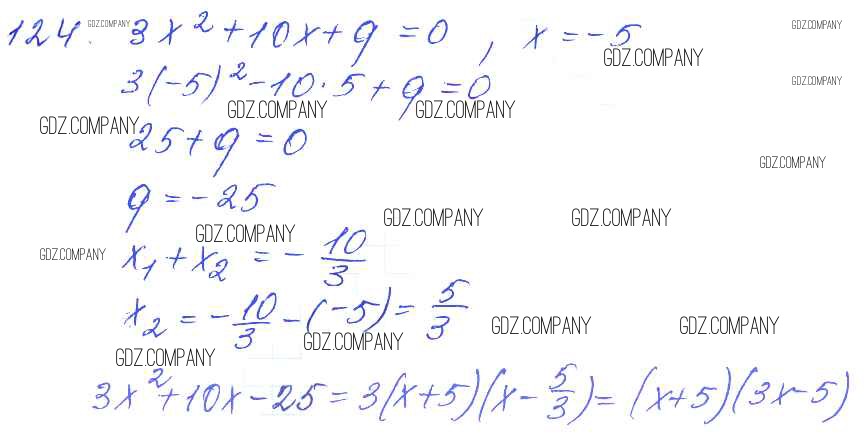 124. GDZ.COMPANY 3x² + 10x + q = 0, x = -5 GDZ.COMPANY
GDZ.COMPANY
3(-5)² - 10 · 5 + q = 0 GDZ.COMPANY
GDZ.COMPANY GDZ.COMPANY GDZ.COMPANY
25 + q = 0
GDZ.COMPANY
q = -25
GDZ.COMPANY GDZ.COMPANY GDZ.COMPANY
GDZ.COMPANY x₁ + x₂ = - 10/3
x₂ = - 10/3 - (-5) = 5/3
GDZ.COMPANY GDZ.COMPANY GDZ.COMPANY
GDZ.COMPANY
3x² + 10x - 25 = 3(x+5)(x - 5/3) = (x+5)(3x-5)